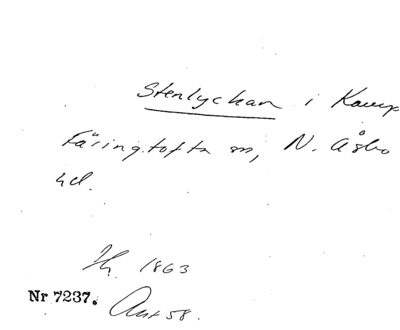 Stenlyckan i Kamp
Färingtofta sn, N. Åsbo
hd.
1863
Nr 7237. Aut 58.